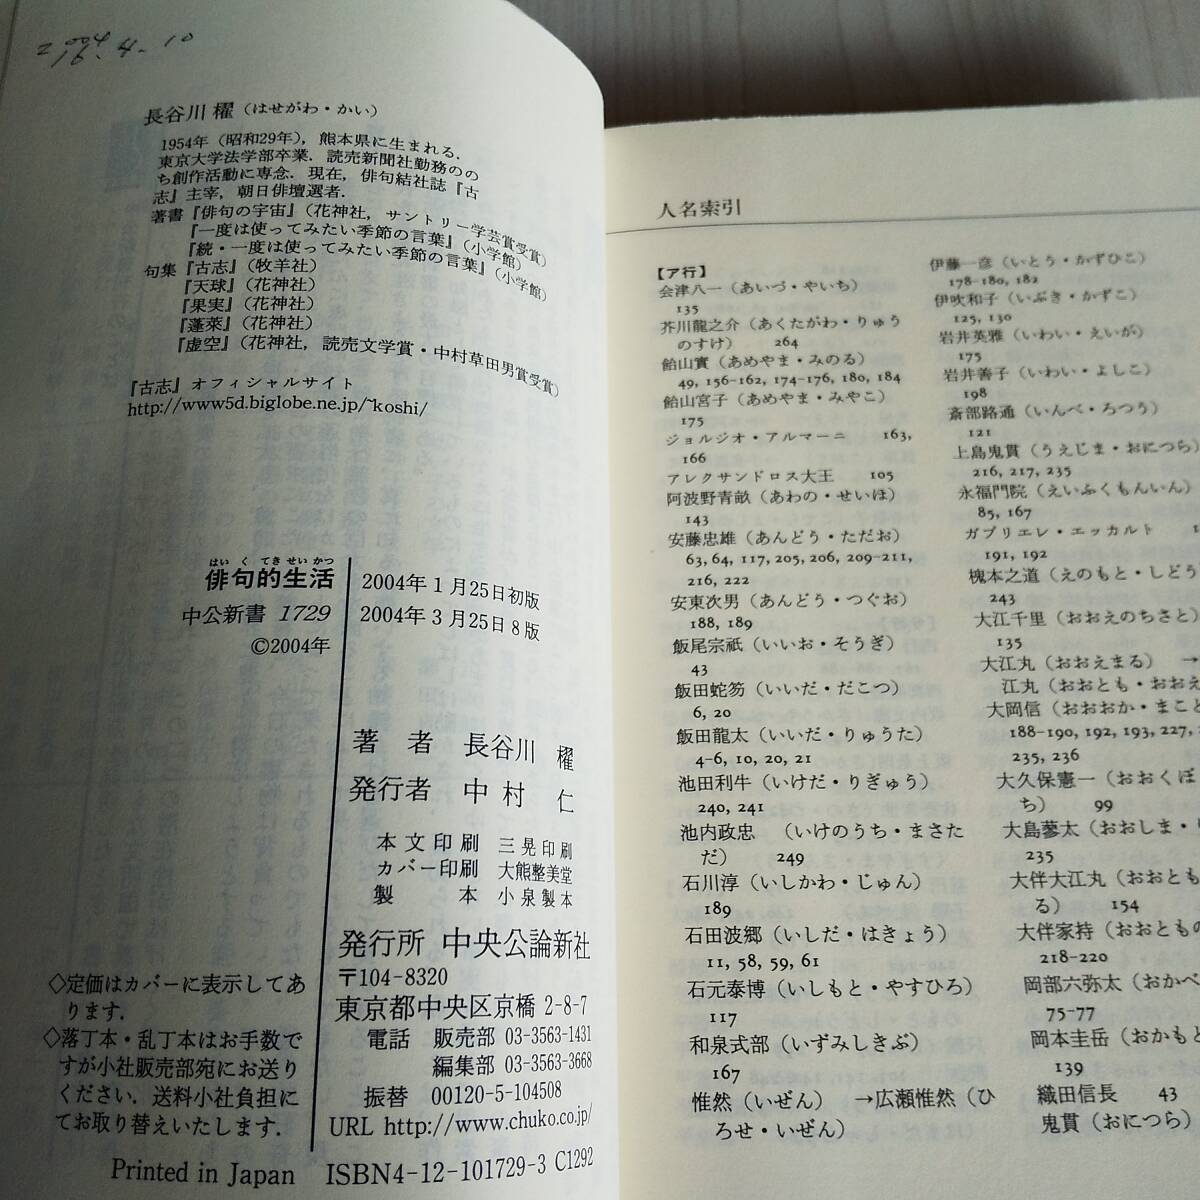 2004-4-10
長谷川 櫂（はせがわ・かい）
1954年（昭和29年），熊本県に生まれる．
東京大学法学部卒業．読売新聞社勤務のの
ち創作活動に専念．現在，俳句結社誌『古
志』主宰，朝日俳壇選者．
著書『俳句の宇宙』（花神社，サントリー学芸賞受賞）
『一度は使ってみたい季節の言葉』（小学館）
『続・一度は使ってみたい季節の言葉』（小学館）
句集『古志』（牧羊社）
『天球』（花神社）
『果実』（花神社）
『蓬萊』（花神社）
『虚空』（花神社，読売文学賞・中村草田男賞受賞）
『古志』オフィシャルサイト
http://www5d.biglobe.ne.jp/~koshi/
はいくてきせいかつ
俳句的生活
中公新書 1729
©2004年
2004年1月25日初版
2004年3月25日8版
著 者 長谷川 櫂
発行者 中村 仁
本文印刷 三晃印刷
カバー印刷 大熊整美堂
製 本 小泉製本
発行所 中央公論新社
〒104-8320
東京都中央区京橋 2-8-7
電話 販売部 03-3563-1431
編集部 03-3563-3668
振替 00120-5-104508
URL http://www.chuko.co.jp/
◇定価はカバーに表示してあ
ります．
◇落丁本・乱丁本はお手数で
すが小社販売部宛にお送り
ください．送料小社負担に
てお取り替えいたします．
Printed in Japan ISBN4-12-101729-3 C1292
人名索引
【ア行】
会津八一（あいづ・やいち）
135
芥川龍之介（あくたがわ・りゅう
のすけ） 264
飴山實（あめやま・みのる）
49, 156-162, 174-176, 180, 184
飴山宮子（あめやま・みやこ）
175
ジョルジオ・アルマーニ 163,
166
アレクサンドロス大王 105
阿波野青畝（あわの・せいほ）
143
安藤忠雄（あんどう・ただお）
63, 64, 117, 205, 206, 209-211,
216, 222
安東次男（あんどう・つぐお）
188, 189
飯尾宗祇（いいお・そうぎ）
43
飯田蛇笏（いいだ・だこつ）
6, 20
飯田龍太（いいだ・りゅうた）
4-6, 10, 20, 21
池田利牛（いけだ・りぎゅう）
240, 241
池内政忠 （いけのうち・まさた
だ） 249
石川淳（いしかわ・じゅん）
189
石田波郷（いしだ・はきょう）
11, 58, 59, 61
石元泰博（いしもと・やすひろ）
117
和泉式部（いずみしきぶ）
167
惟然（いぜん） →広瀬惟然（ひ
ろせ・いぜん）
伊藤一彦（いとう・かずひこ）
178-180, 182
伊吹和子（いぶき・かずこ）
125, 130
岩井英雅（いわい・えいが）
175
岩井善子（いわい・よしこ）
198
斎部路通（いんべ・ろつう）
121
上島鬼貫（うえじま・おにつら）
216, 217, 235
永福門院（えいふくもんいん）
85, 167
ガブリエレ・エッカルト
191, 192
槐本之道（えのもと・しどう
243
大江千里（おおえのちさと）
135
大江丸（おおえまる） →
江丸（おおとも・おおえ
大岡信（おおおか・まこと
188-190, 192, 193, 227,
235, 236
大久保憲一（おおくぼ
ち） 99
大島蓼太（おおしま・り
235
大伴大江丸（おおとも
る） 154
大伴家持（おおともの
218-220
岡部六弥太（おかべ
75-77
岡本圭岳（おかもと
139
織田信長 43
鬼貫（おにつら）